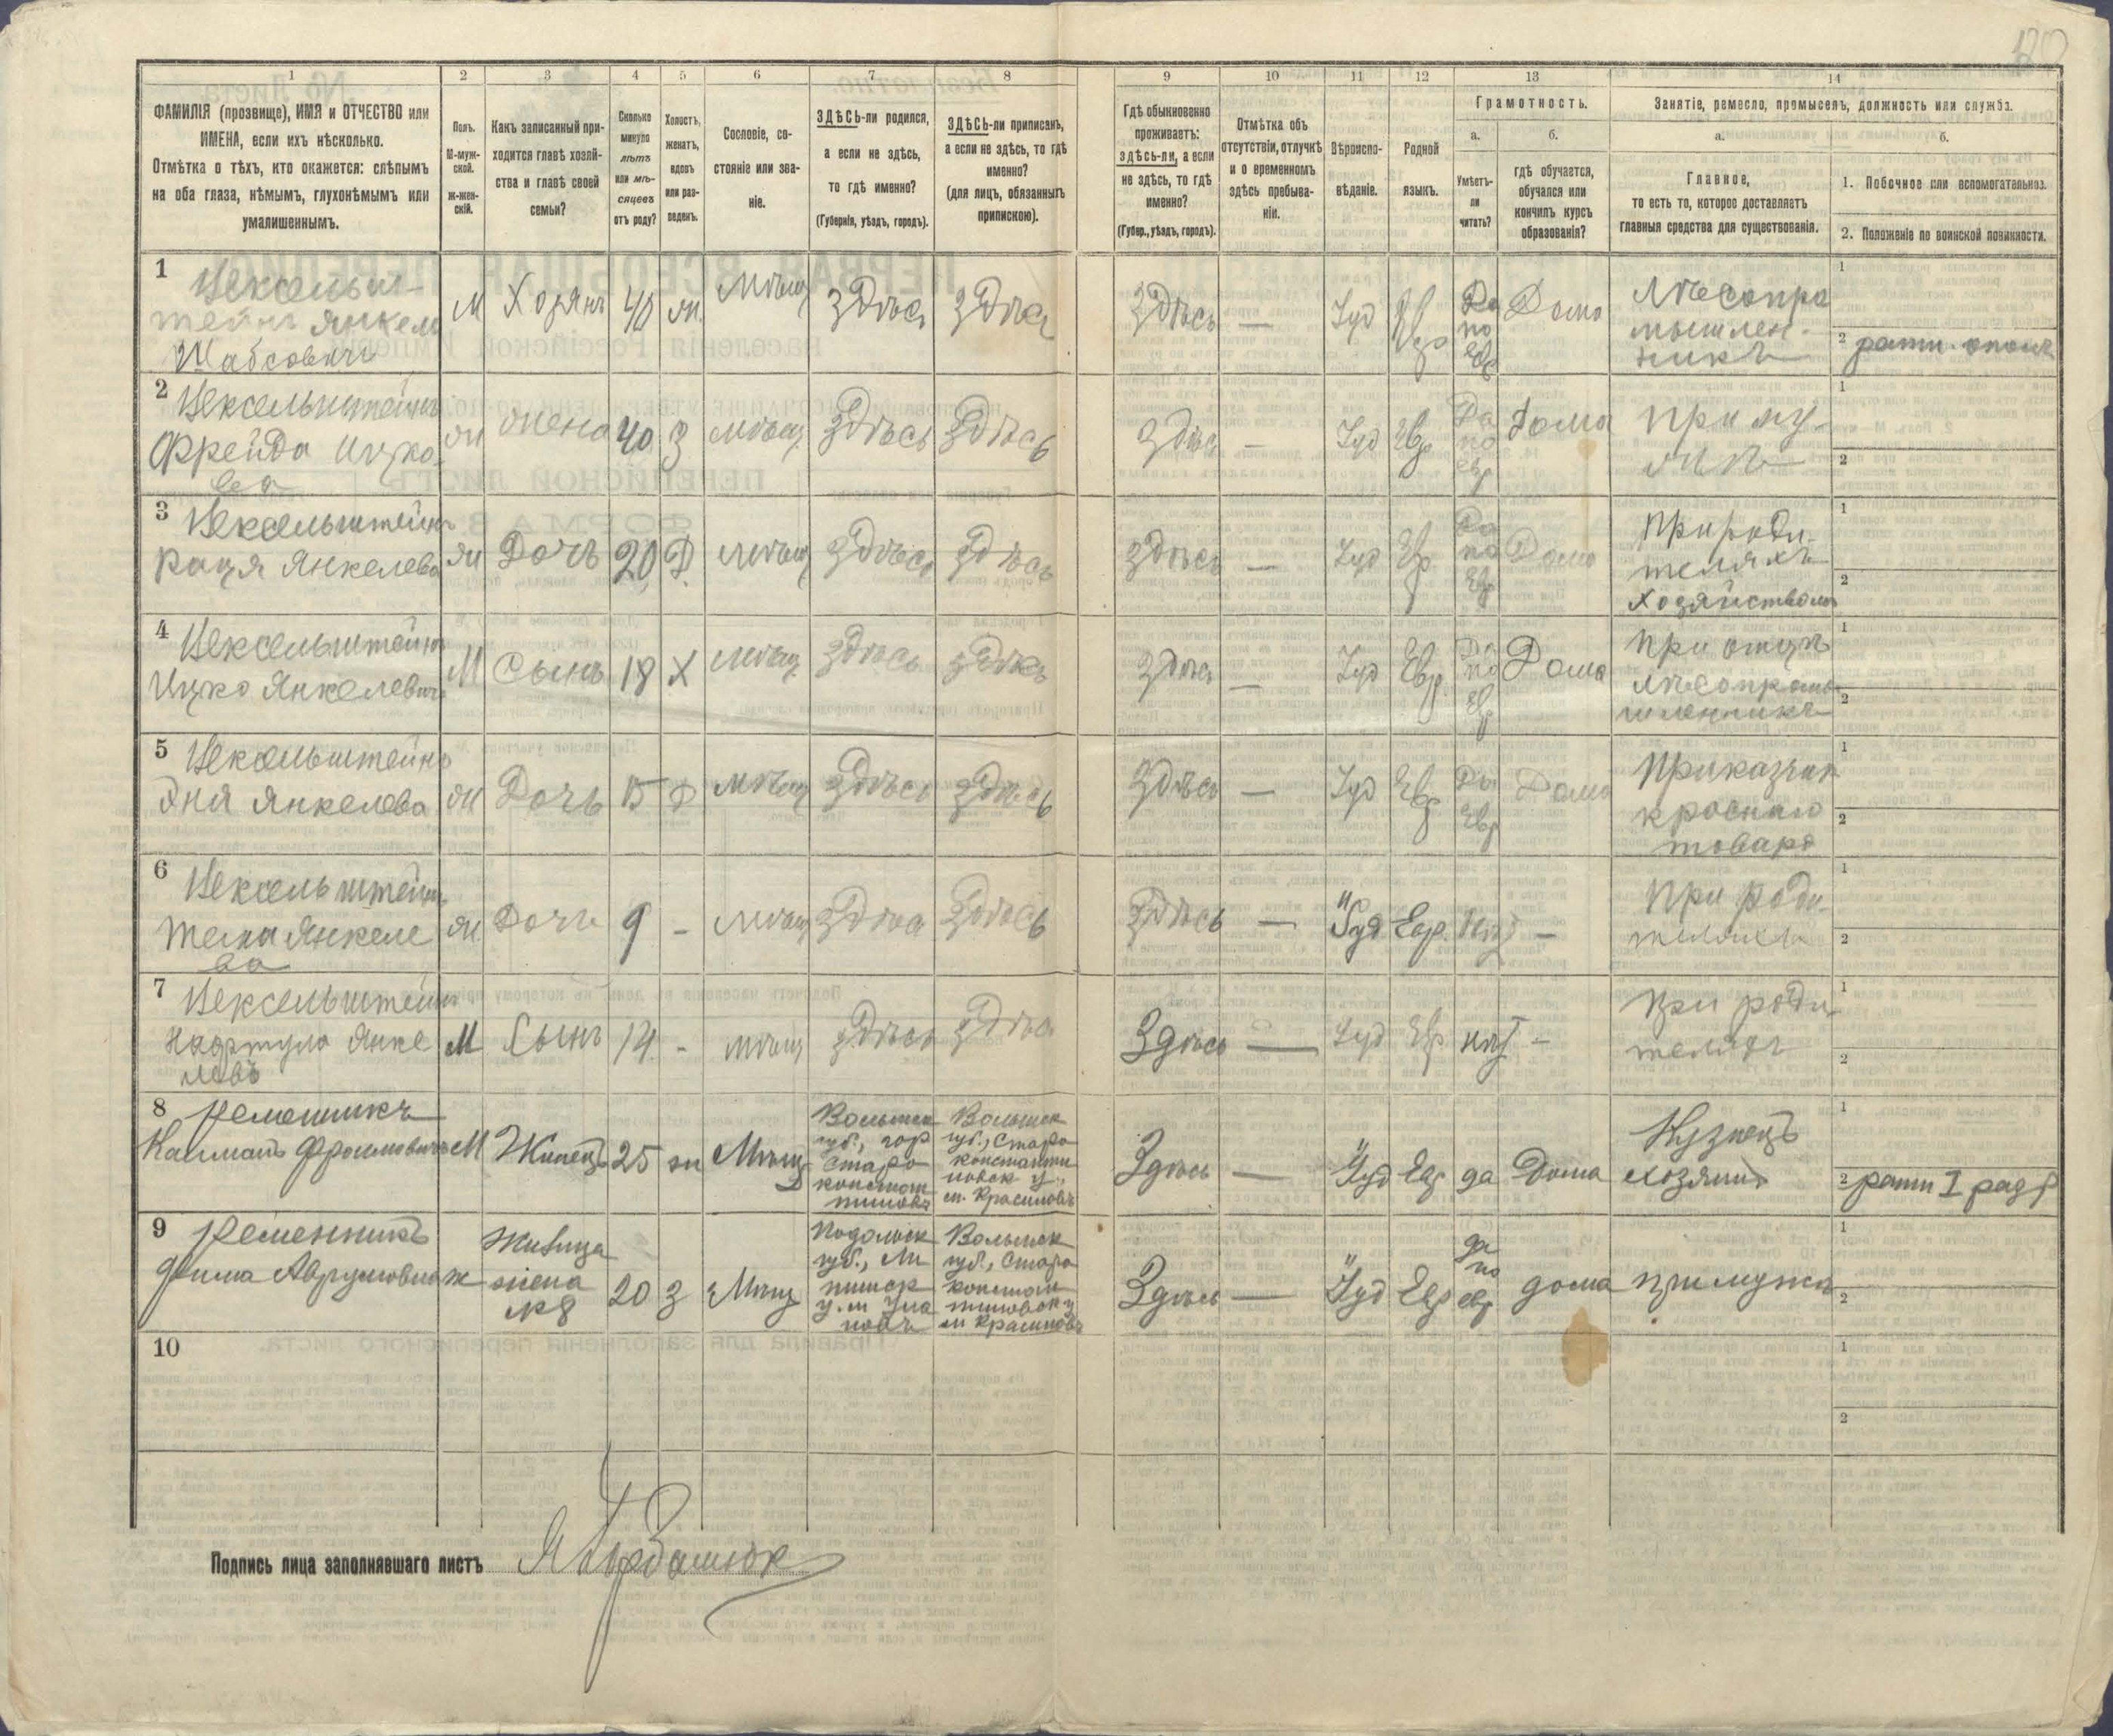 120
1
2
3
4
5
6
7
8
9
10
11
12
13
14
ФАМИЛІЯ (прозвище), ИМЯ и ОТЧЕСТВО или
ИМЕНА, если ихъ нѣсколько.
Отмѣтка о тѣхъ, кто окажется: слѣпымъ
на оба глаза, нѣмымъ, глухонѣмымъ или
умалишеннымъ.
Полъ.
М-муж-
ской.
ж-жен-
скій.
Какъ записанный при-
ходится главѣ хозяй-
ства и главѣ своей
семьи?
Сколько
минуло
лѣтъ
или мѣ-
сяцевъ
отъ роду?
Холостъ,
женатъ,
вдовъ
или раз-
веденъ.
Сословіе, со-
стояніе или зва-
ніе.
ЗДѢСЬ-ли родился,
а если не здѣсь,
то гдѣ именно?
(Губернія, уѣздъ, городъ).
ЗДѢСЬ-ли приписанъ,
а если не здѣсь, то гдѣ
именно?
(для лицъ, обязанныхъ
припискою).
Гдѣ обыкновенно
проживаетъ:
здѣсь-ли, а если
не здѣсь, то гдѣ
именно?
(Губер., уѣздъ, городъ).
Отмѣтка объ
отсутствіи, отлучкѣ
и о временномъ
здѣсь пребыва-
ніи.
Вѣроиспо-
вѣданіе.
Родной
языкъ.
Грамотность.
а.
Умѣетъ-
ли
читать?
б.
гдѣ обучается,
обучался или
кончилъ курсъ
образованія?
Занятіе, ремесло, промыселъ, должность или служба.
а.
Главное,
то есть то, которое доставляетъ
главныя средства для существованія.
б.
1. Побочное или вспомогательное.
2. Положеніе по воинской повинности.
1
Векселъш-
тейнъ Янкель
Шабсовичъ
М
Хозяинъ
40
ж.
Мѣщ
Здѣсь
Здѣсь
Здѣсь
—
Іуд
Евр
Да
по
евр
Дома
Лѣсопро
мышлен-
никъ
1
2 ратн. ополч
2
Вексельштейнъ
Фрейда Ицко
ва
ж
жена
40
З
мѣщ
Здѣсь
Здѣсь
Здѣсь
—
Іуд
Евр
Да
по
евр
Дома
При му-
жѣ
1
2
3
Вексельштейнъ
Рація Янкелева
ж
Дочь
20
Д
мѣщ
Здѣсь
Здѣсь
Здѣсь
—
Іуд
Евр
Да
по
Евр
Дома
При роди-
теляхъ
хозяйством
1
2
4
Вексельштейнъ
Ицко Янкелевичъ
М
Сынъ
18
Х
мѣщ
Здѣсь
Здѣсь
Здѣсь
—
Іуд
Евр
Да
по
Евр
Дома
При отцѣ
лѣсопромы-
шленникъ
1
2
5
Вексельштейнъ
Эня Янкелева
ж
Дочь
15
Д
мѣщ
Здѣсь
Здѣсь
Здѣсь
—
Іуд
Евр
Да
Евр
Дома
Приказчик
краснаго
товара
1
2
6
Вексельштейнъ
Янкеле
ва
ж
Дочь
9
-
мѣщ
Здѣсь
Здѣсь
Здѣсь
—
Іуд
Евр.
нѣт
—
При роди-
теляхъ
1
2
7
Вексельштейнъ
Нафтула Янке
левъ
М
Сынъ
14
-
мѣщ
Здѣсь
Здѣсь
Здѣсь
—
Іуд
Евр
нѣт
—
При роди
теляхъ
1
2
8
Ременникъ
Калманъ Фроимовичъ
М
Жилецъ
25
ж
Мѣщ
Волынск
губ., гор
Старо
констан
тиновъ
Волынск
губ., Старо
константи
новск у.,
м. Красиловъ
Здѣсь
—
Іуд
Евр
да
Дома
Кузнецъ
хозяинъ
1
2 ратн I разр
9
Ременникъ
Авrумовна
ж
Жилица
жена
№8
20
з
Мѣщ
Подольск
губ., Ли
тинск
у. м Ула
новъ
Волынск
губ., Старо
констан
тиновск у
м Красиловъ
Здѣсь
—
Іуд
Евр
да
по
евр
дома
При мужѣ
1
2
10
1
2
Подпись лица заполнявшаго листъ